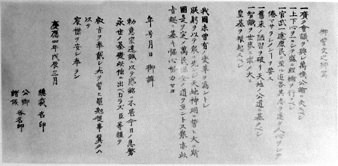 御誓文之御寫
一廣ク會議ヲ興シ萬機公論ニ決スヘシ
一上下心ヲ一ニシテ盛ニ經綸ヲ行フヘシ
一官武一途庶民ニ至ル迄各其志ヲ遂ケ人心ヲシテ
倦マサラシメン事ヲ要ス
一舊來ノ陋習ヲ破リ天地ノ公道ニ基クヘシ
一智識ヲ世界ニ求メ大ニ
皇基ヲ振起スヘシ
我國未曾有ノ變革ヲ為ントシ
朕躬ヲ以テ衆ニ先シ天地神明ニ誓ヒ大ニ斯
國是ヲ定メ萬民保全ノ道ヲ立ントス衆亦此
旨趣ニ基キ協心努力セヨ
年号月日 御諱
勅意宏遠誠ニ以テ感銘ニ不堪今日ノ急務
永世ノ基礎此他ニ出ヘカラス臣等謹テ
叡旨ヲ奉戴シ死ヲ誓ヒ黽勉從事冀クハ
以テ
宸襟ヲ安シ奉ラン
慶應四年戊辰三月
總裁 名印
公卿 各名印
諸侯